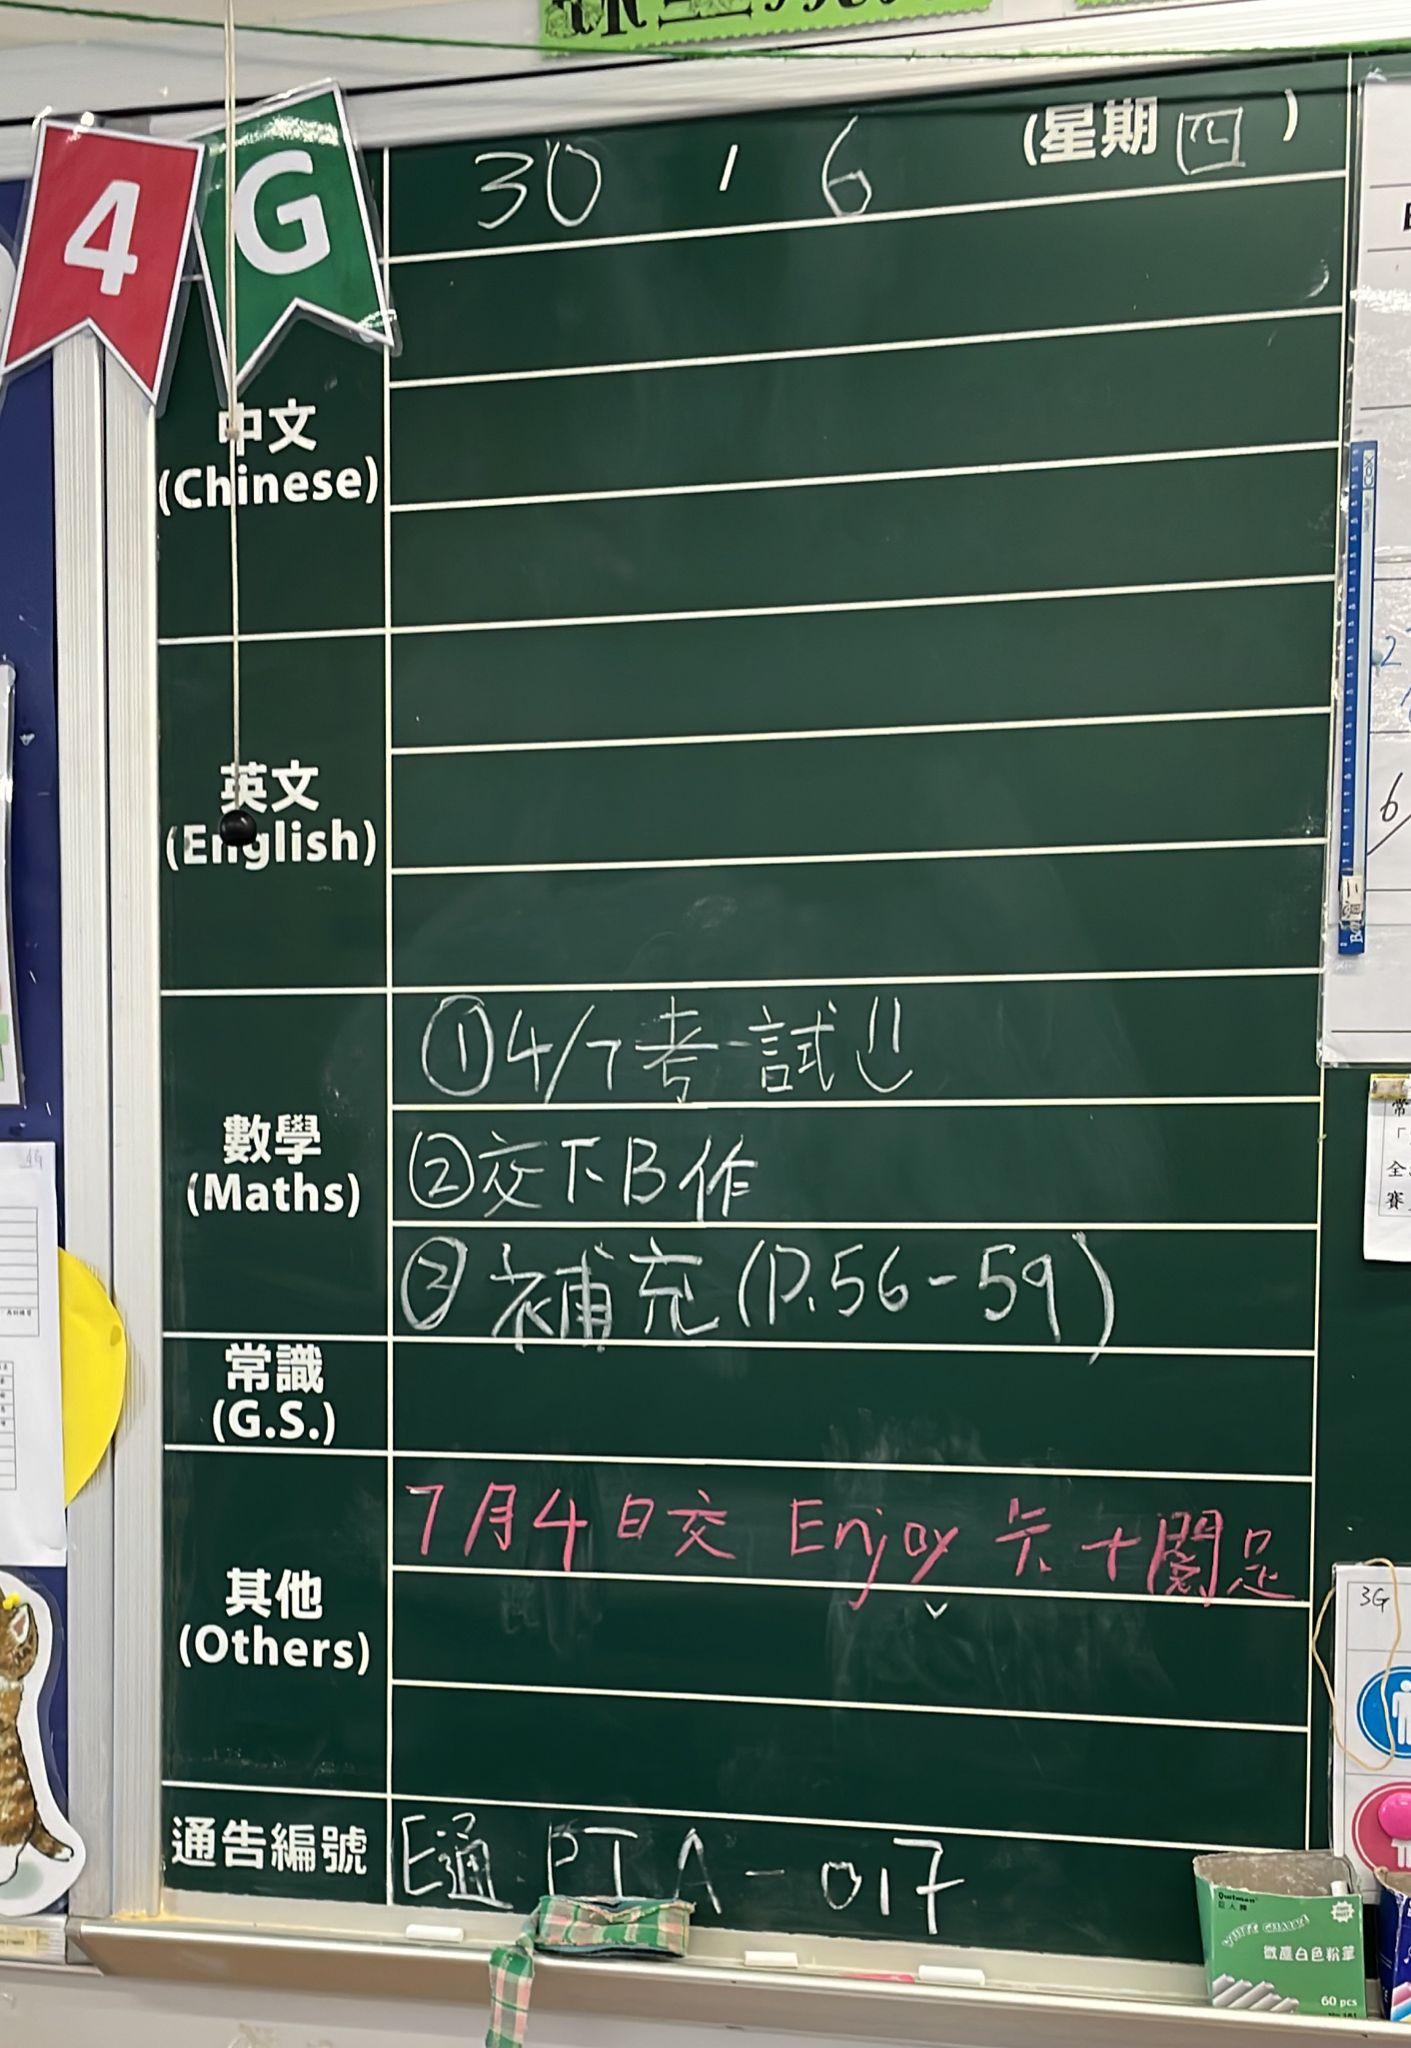 4 G
30 / 6 (星期 四 )
中文
(Chinese)
英文
(English)
數學
(Maths)
①4/7考試!!
②交下B作
③補充(P.56-59)
常識
(G.S.)
其他
(Others)
7月4日交 Enjoy 卡+閱足
通告編號
E通 PTA-017
3G
WHITE CHALKS
微塵白色粉筆
60 pcs